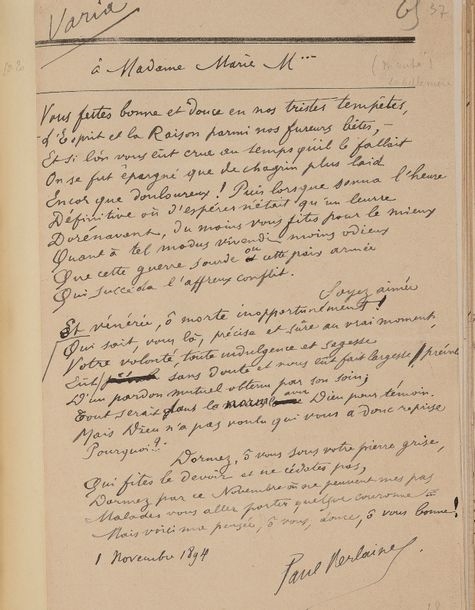 Varia
65 37
à Madame Marie M***
Vous fûtes bonne et douce en nos tristes tempêtes,
L'Esprit et la Raison parmi nos fureurs bêtes, —
Et si l'on vous eût crue au temps qu'il le fallait
On se fut épargné que de chagrin plus laid
Encor que douloureux! Puis lorsque sonna l'heure
Définitive où d'espérer n'était qu'un leurre
Dorénavant, du moins vous fîtes pour le mieux
Quant à tel modus vivendi moins odieux
Que cette guerre sourde ou cette paix armée
Qui succéda l'affreux conflit.
Soyez aimée
Et vénérée, ô morte inopportunément!
Qui sait, vous là, précise et sûre au vrai moment,
Votre volonté, toute indulgence et sagesse
Eût prévalu sans doute et nous eût fait largesse
D'un pardon mutuel obtenu par son soin;
Tout serait dans la avec Dieu pour témoin.
Mais Dieu n'a pas voulu qui vous a donc reprise
Pourquoi?
Dormez, ô vous sous votre pierre grise,
Qui fîtes le devoir et ne cédâtes pas,
Dormez par ce Novembre où ne peuvent mes pas
Malades vous aller porter quelque couronne
Mais voici ma pensée, ô vous, douce, ô vous bonne!
1 Novembre 1894
Paul Verlaine